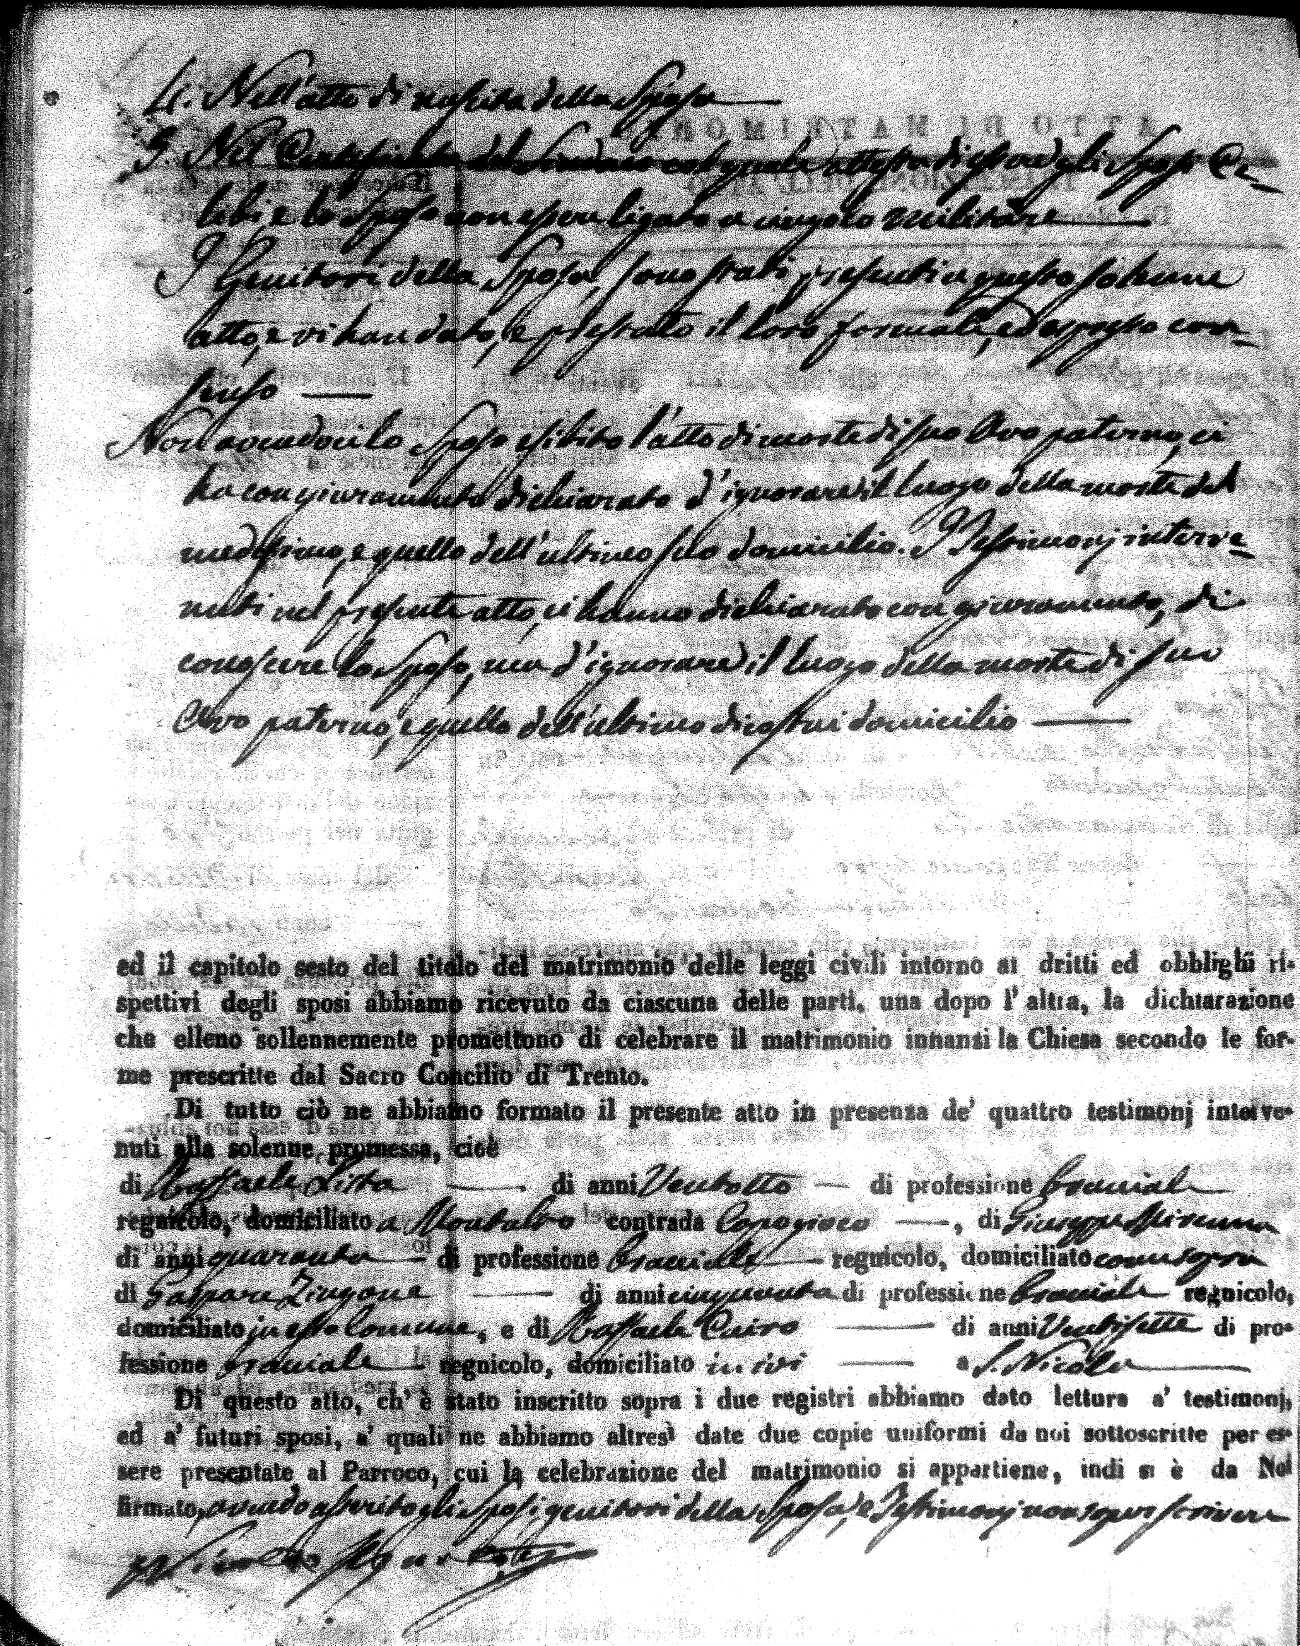 4. Nell'atto di nascita della Sposa
5. Nel Certificato del Sindaco col quale attesta di essere gli Sposi Ce-
libi, e lo Sposo non essere ligato a cingolo militare
I Genitori della Sposa, sono stati presenti a questo solenne
atto, e vi han dato, e prestato il loro formale, ed espresso con-
senso
Non avendoci lo Sposo esibito l'atto di morte di suo Avo paterno, ci
ha con giuramento dichiarato d'ignorare il luogo della morte del
medesimo, e quello dell'ultimo suo domicilio. I Testimonj interve-
nuti nel presente atto, ci hanno dichiarato con giuramento, di
conoscere lo Sposo, ma d'ignorare il luogo della morte di suo
Avo paterno, e quello dell'ultimo di costui domicilio
ed il capitolo sesto del titolo del matrimonio delle leggi civili intorno ai dritti ed obblighi ri-
spettivi degli sposi abbiamo ricevuto da ciascuna delle parti, una dopo l'altra, la dichiarazione
che elleno sollennemente promettono di celebrare il matrimonio innanzi la Chiesa secondo le for-
me prescritte dal Sacro Concilio di Trento.
Di tutto ciò ne abbiamo formato il presente atto in presenza de' quattro testimonj interve-
nuti alla solenne promessa, cioè
di Raffaele Lista di anni Ventotto di professione bracciale
regnicolo, domiciliato a Montalto contrada, di Giuseppe
di anni quaranta di professione bracciale regnicolo, domiciliato come sopra
di Gaspare Zingone di anni cinquanta di professione bracciale regnicolo,
domiciliato in esso Comune, e di Raffaele Cairo di anni Ventisette di pro-
fessione bracciale regnicolo, domiciliato in ivi a S. Nicola
Di questo atto, ch'è stato inscritto sopra i due registri abbiamo dato lettura a' testimonj,
ed a' futuri sposi, a' quali ne abbiamo altresì date due copie uniformi da noi sottoscritte per es-
sere presentate al Parroco, cui la celebrazione del matrimonio si appartiene, indi si è da Noi
firmato, avendo asserito gli Sposi, genitori della Sposa, e Testimonj non saper scrivere